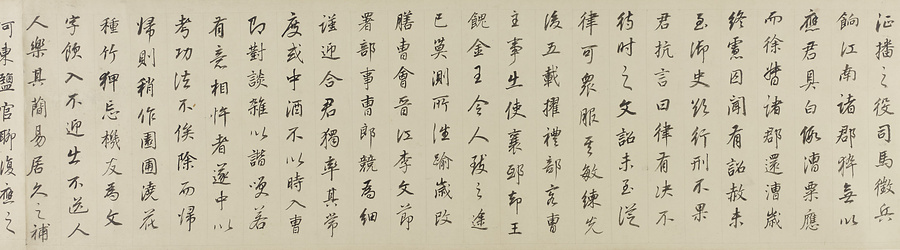 征播之役司馬徵兵
餉江南諸郡猝無以
應君具白假漕粟應
而徐督諸郡還漕歲
終憲因聞有詔赦未
至御史欲行刑不果
君抗言曰律有决不
待時之文詔未至從
律可眾服其敏練先
後五載擢禮部主客曹
主事生使襄鄧却王
餽金王令人跋之途
已莫測所從踰歲改
膳曹會晉江李文節
署部事曹郎競為細
謹迎合君獨率其常
度或中酒不以時入曹
即對談雜以諧嗄若
有意相忤者遂中以
考功法不俟除而歸
歸則稍作園圃澆花
種竹狎忘機友為文
字飲入不迎出不送人
人樂其簡易居久之補
河東鹽官聊復應之